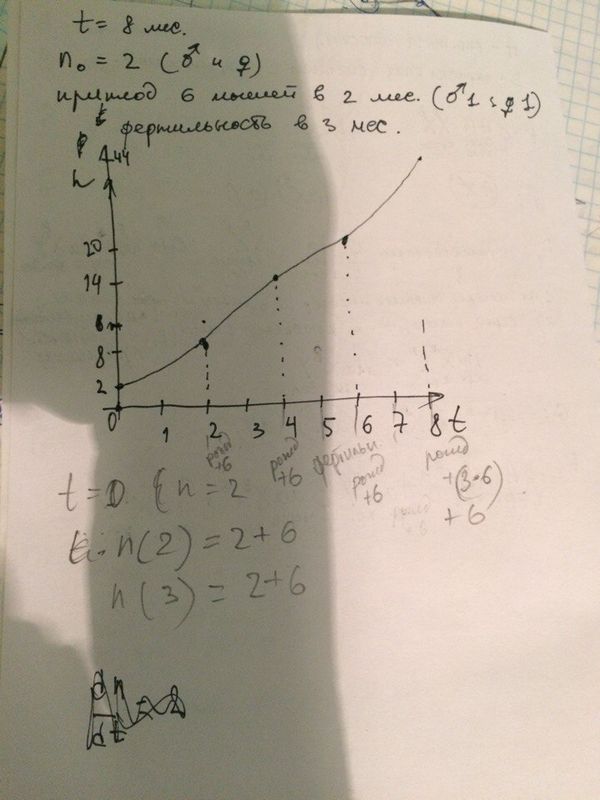 t = 8 мес.
n₀ = 2 (♂ и ♀)
приплод 6 мышей в 2 мес. (♂1 : ♀1)
фертильность в 3 мес.
44
20
14
8
2
0 1 2 3 4 5 6 7 8 t
рожд +6
рожд +6
фертильн
рожд +6
рожд +(3·6) +6
t = 0. { n = 2
n(2) = 2+6
n(3) = 2+6
dn
dt